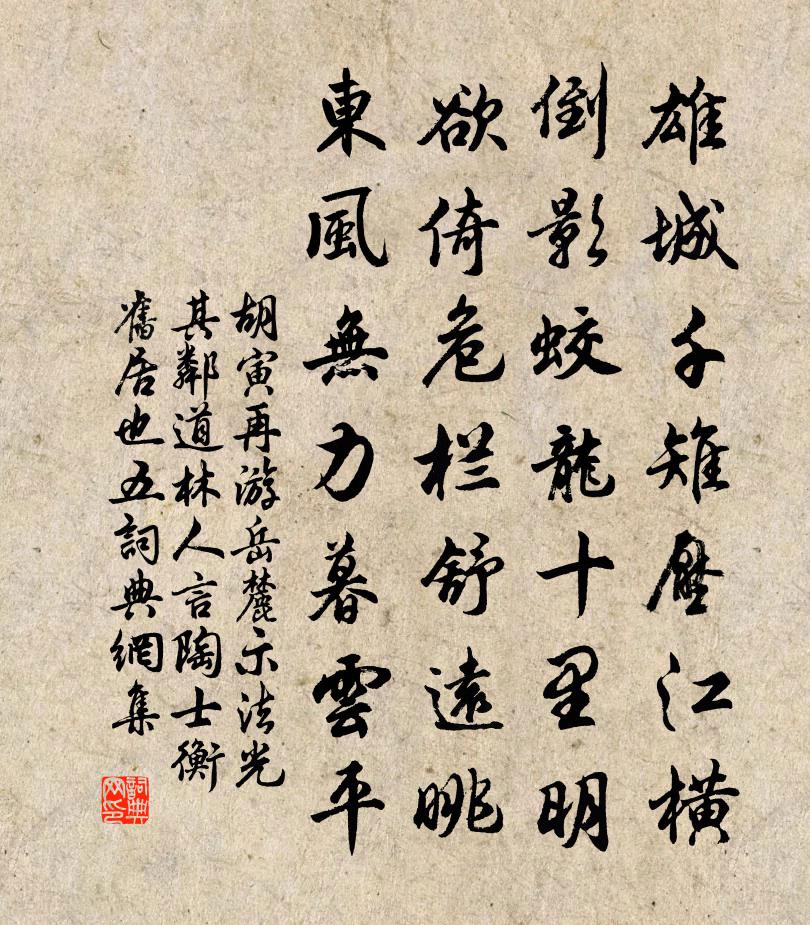 雄城千雉壓江橫
倒影蛟龍十里明
欲倚危栏舒遠眺
東風無力暮雲平
胡寅再游岳麓示法光
其鄰道林人言陶士衡
舊居也五詞典網集
詞典网印